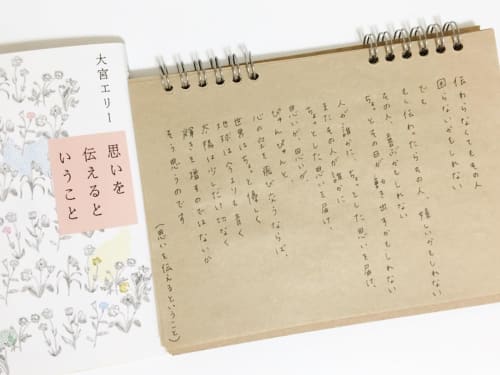 大宮エリー
思いを
伝えると
いうこと
伝わらなくてもその人
困らないかもしれない
でも
もし伝わったらその人、嬉しいかもしれない
その人、喜ぶかもしれない
ちょっとその日、動き出すかもしれない
人が誰かに、ちょっとした思いを届け、
またその人が誰かに
ちょっとした思いを届け、
思いが、
ぴょんぴょんと
心の空を飛びかうならば、
世界はちょっと優しく
地球は今よりも青く
太陽は少しだけ切なく
輝きを増すのではないか
そう思うのです
(思いを伝えるということ)